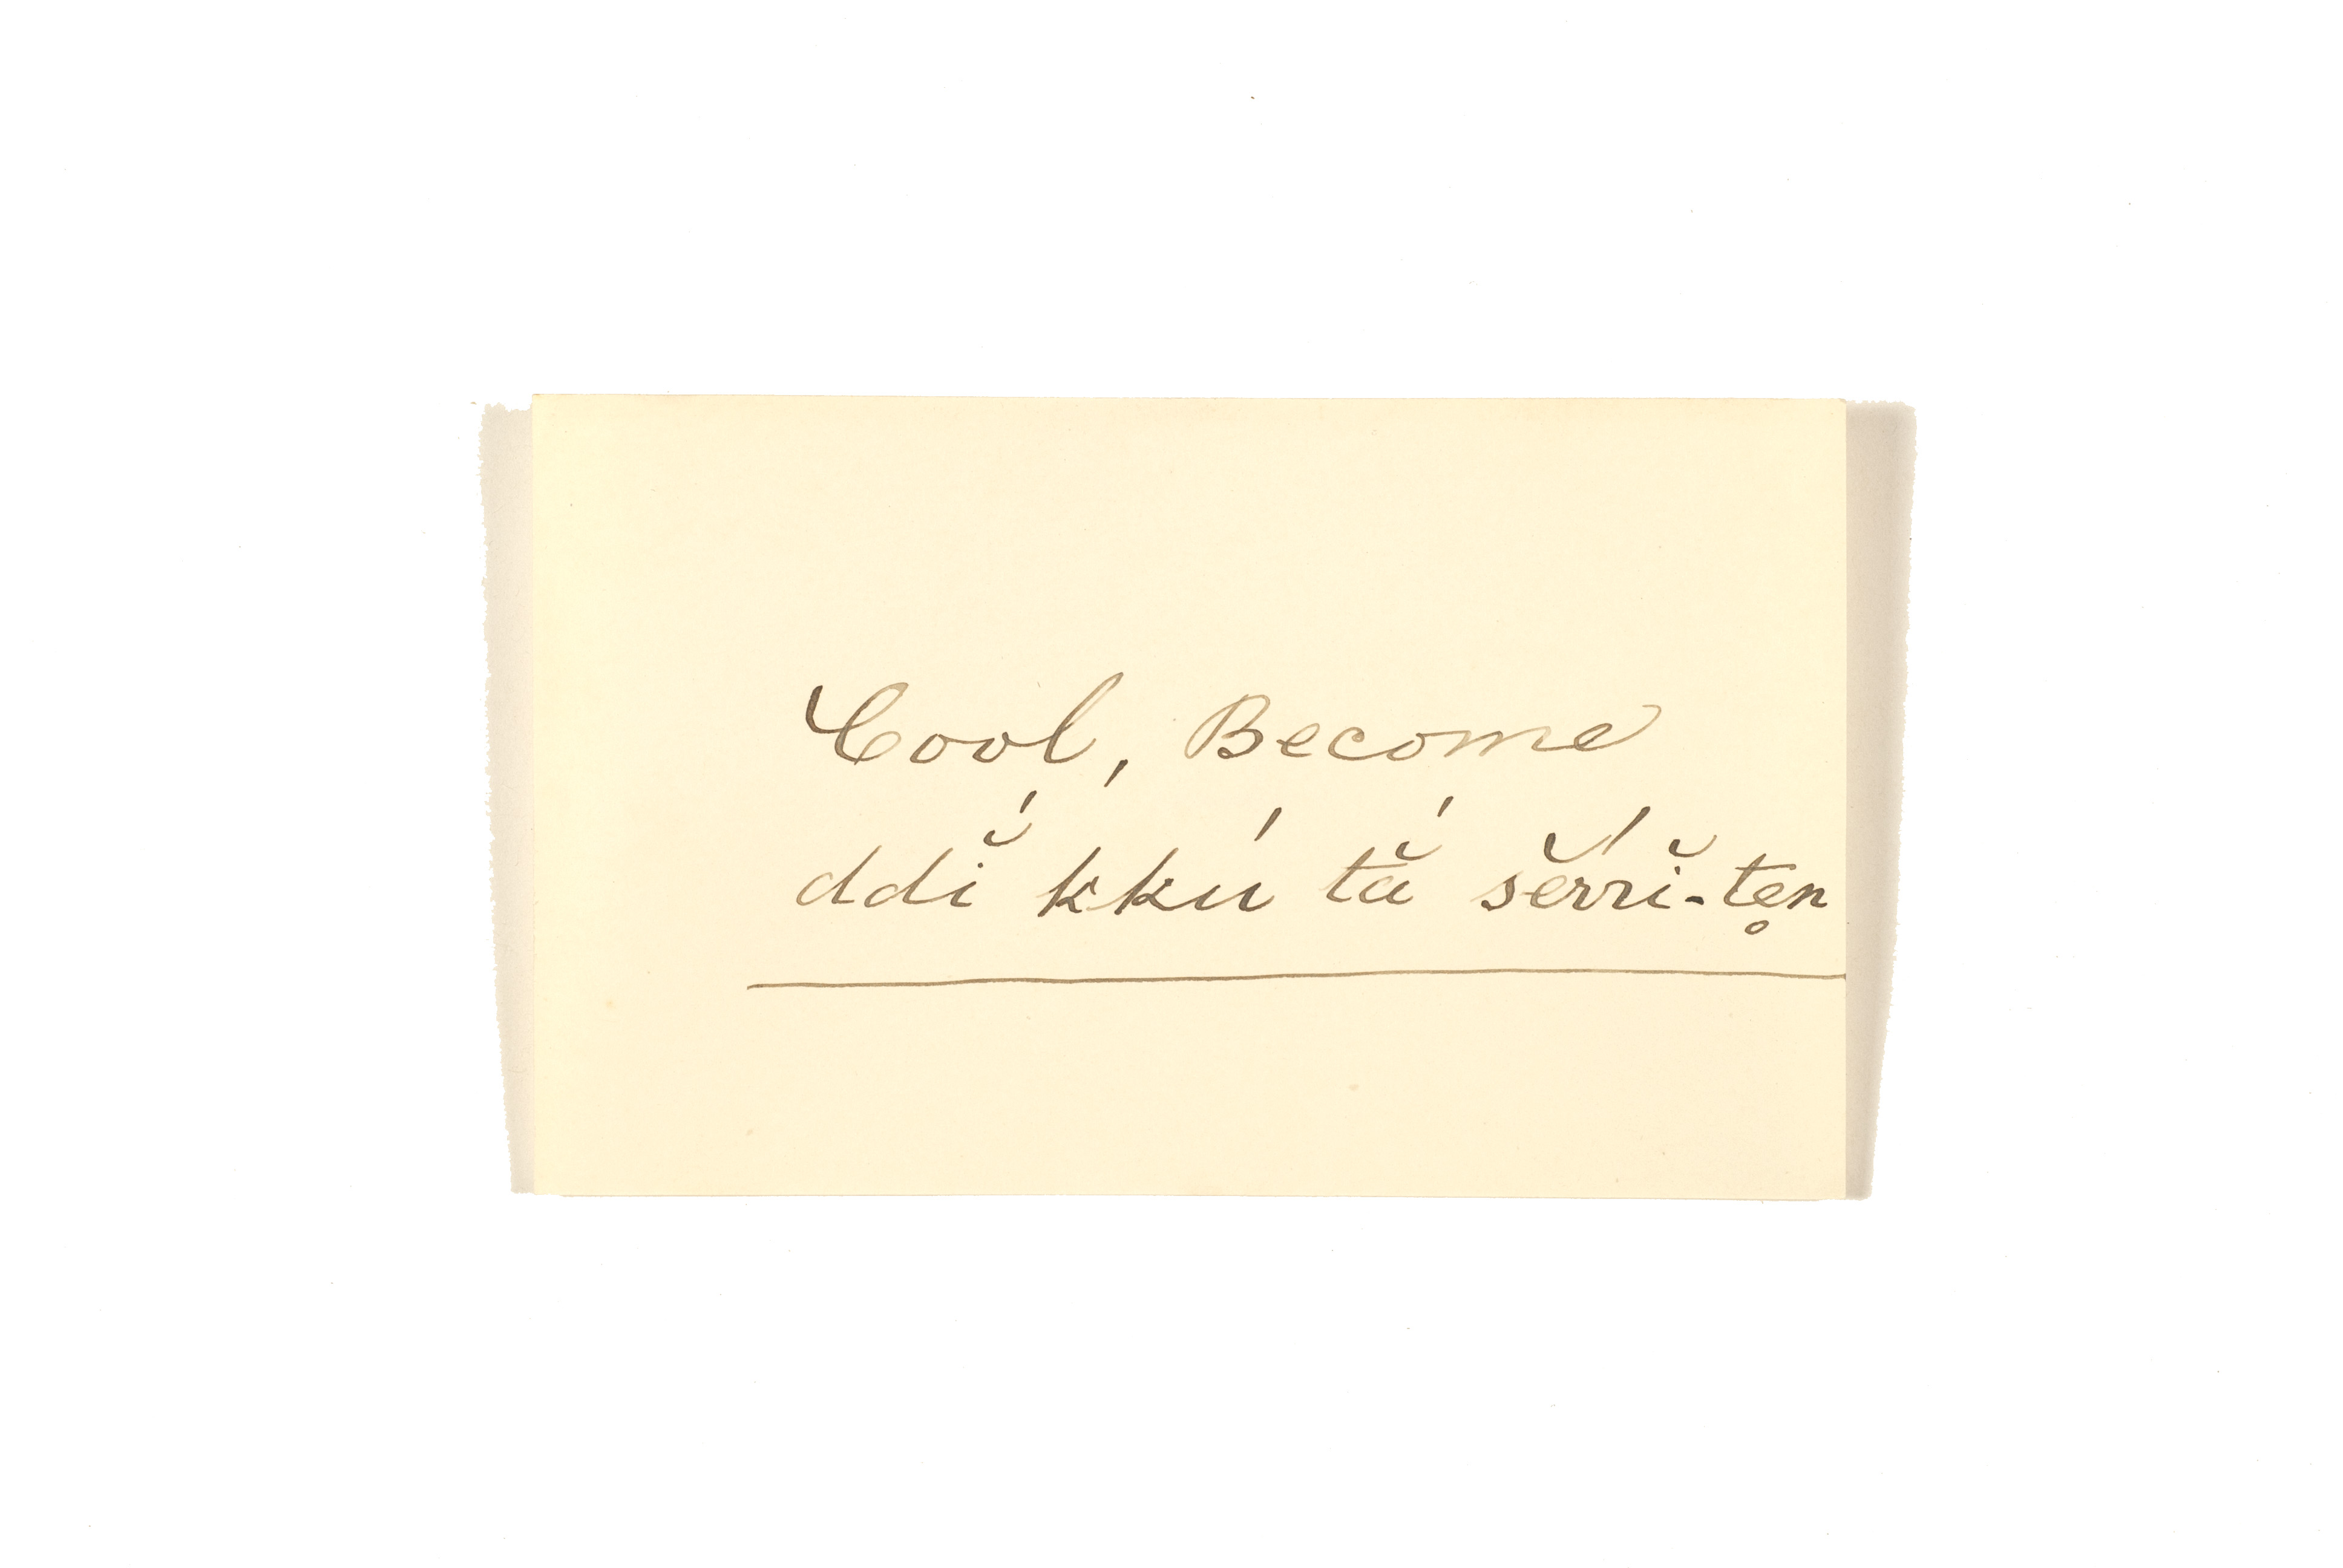 Cool, Become
ddĭ́ kkú tắ sĕ́rrĭ-te̥n